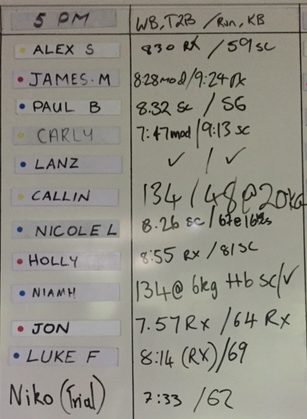 5 PM WB, T2B / Run, KB
ALEX S 830 RX / 59 sc
JAMES.M 8:28mod / 9:24 Rx
PAUL B 8.32 sc / 56
CARLY 7:47mod / 9:13 sc
LANZ ✓ / ✓
CALLIN 134 / 48@20kg
NICOLE L 8.26 sc / 67e
HOLLY 8:55 RX / 81 SC
NIAMH 134@ 6kg sc/✓
JON 7.57 RX / 64 RX
LUKE F 8:14 (RX) / 69
Niko (Trial) 7:33 / 62